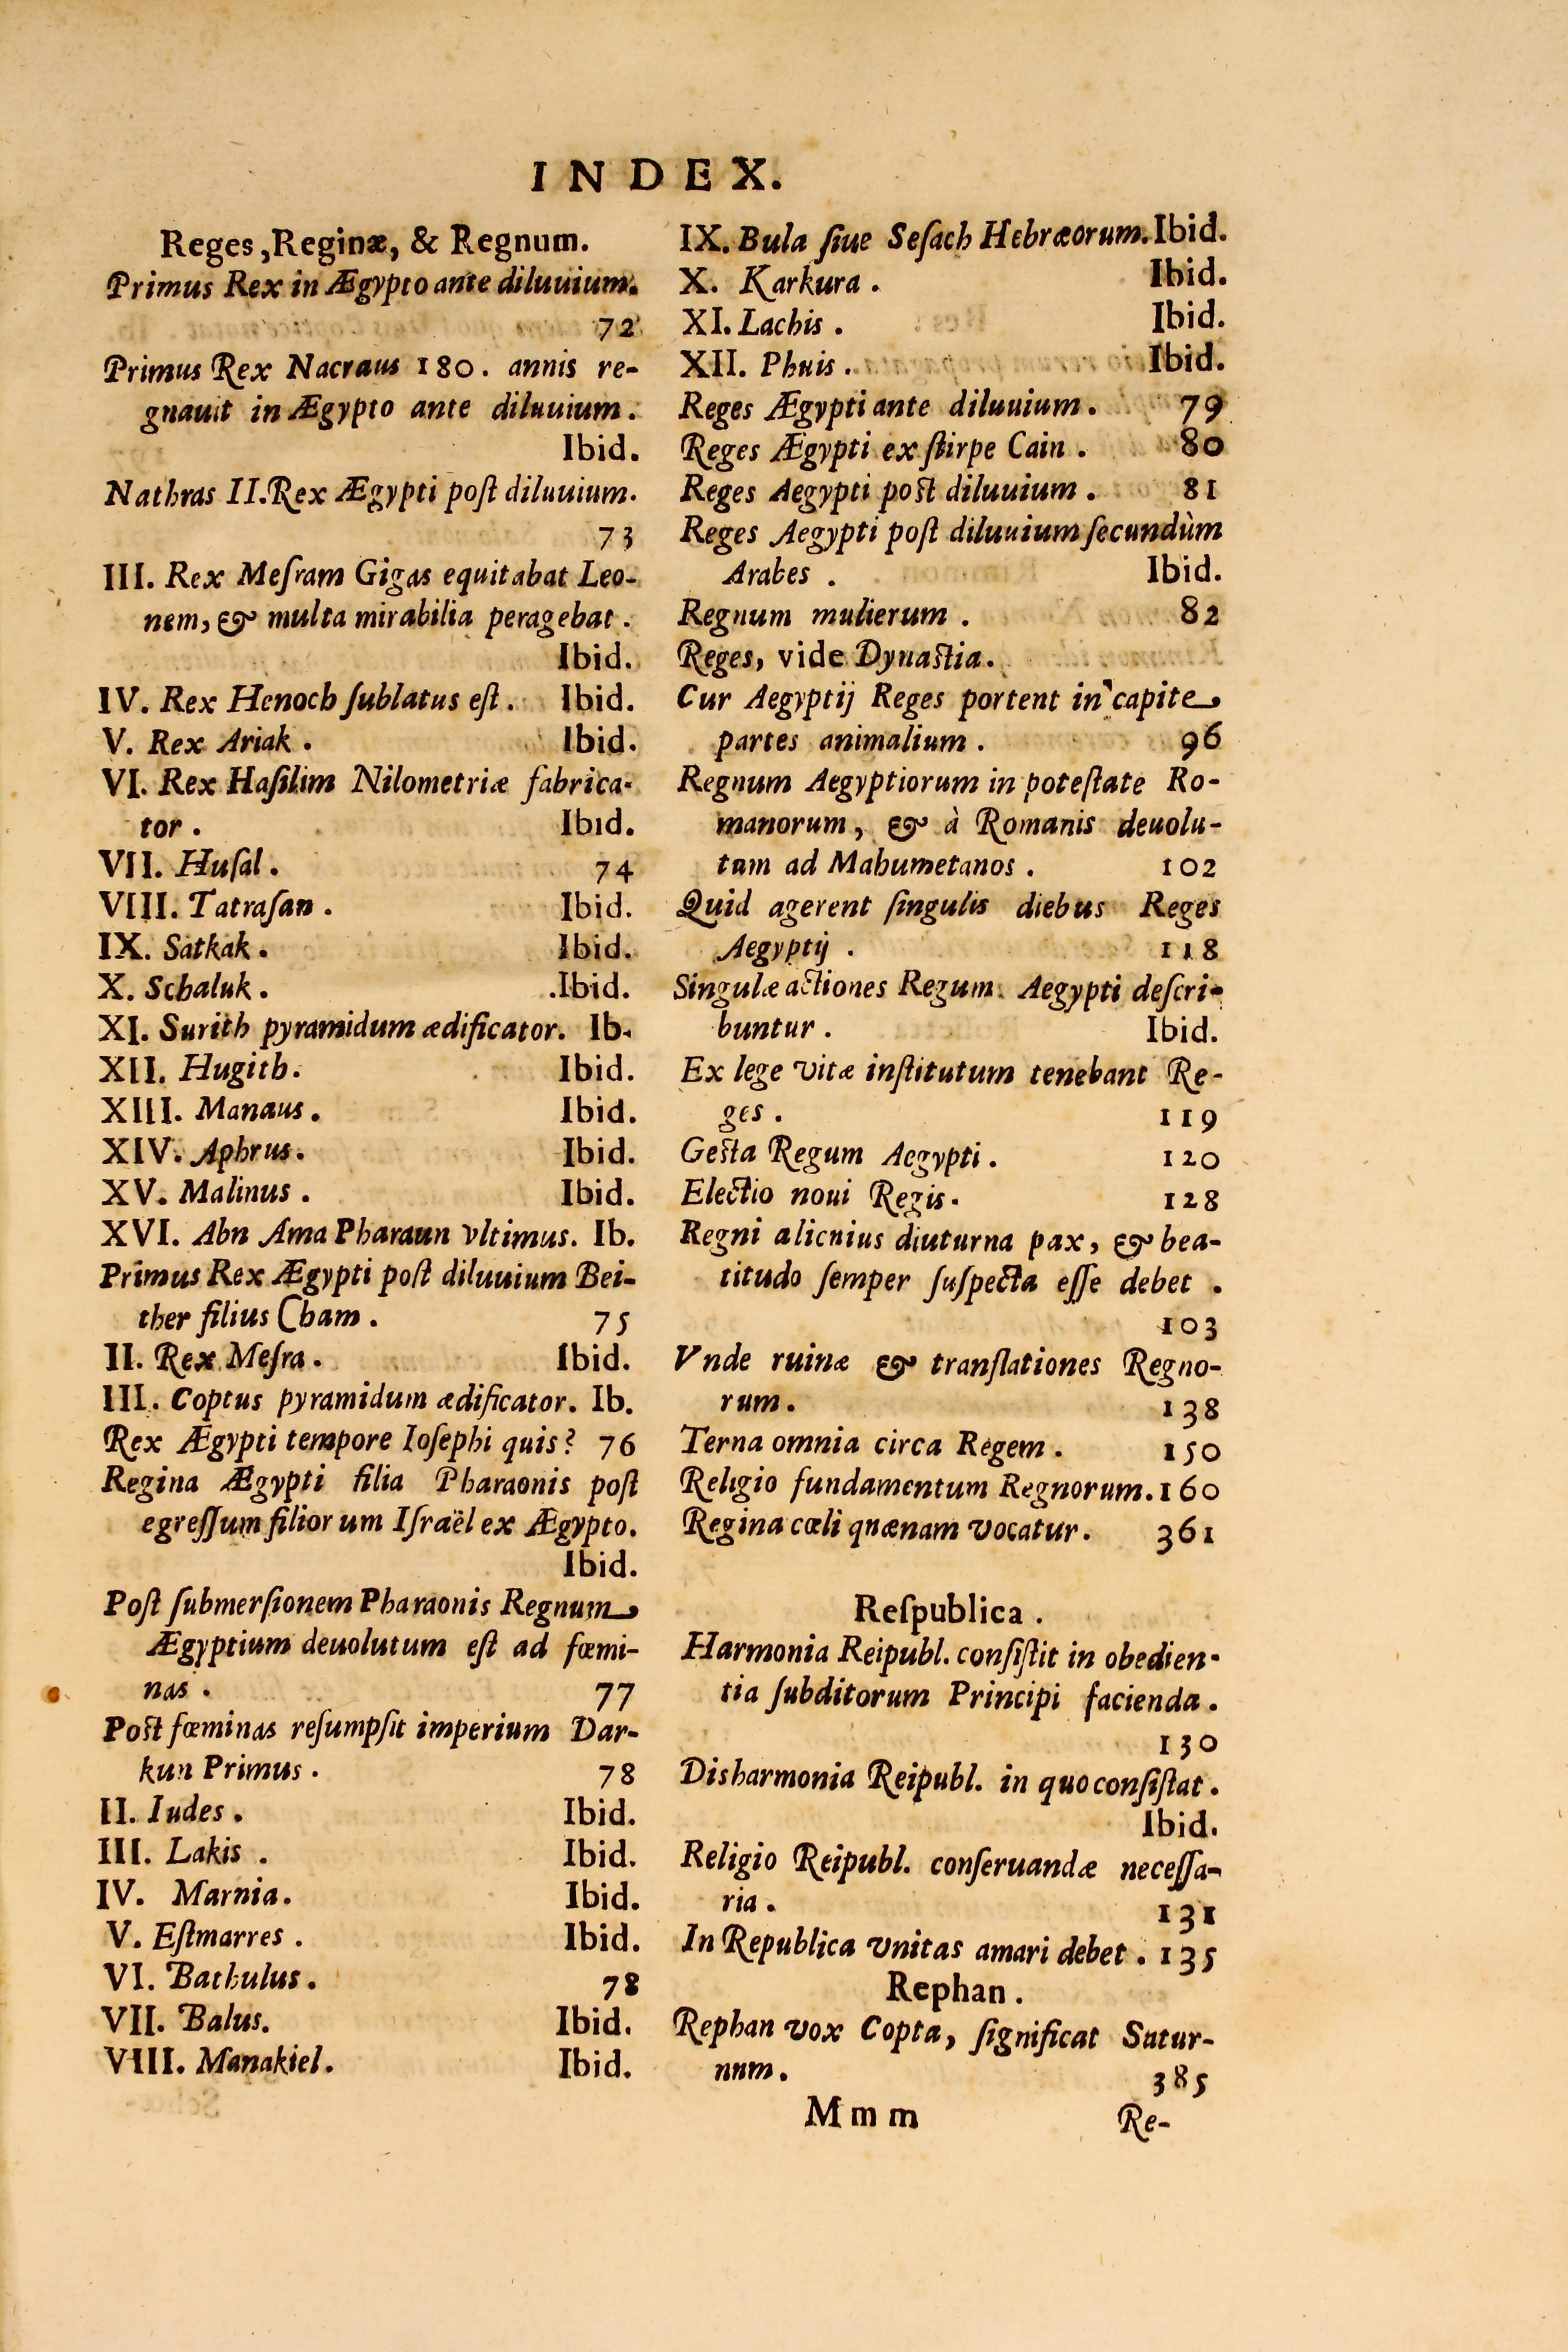 INDEX.
Reges, Reginæ, & Regnum.
Primus Rex in Ægypto ante diluuium.
72
Primus Rex Nacraus 180. annis re-
gnauit in Ægypto ante diluuium.
Ibid.
Nathras II. Rex Ægypti poſt diluuium.
73
III. Rex Meſram Gigas equitabat Leo-
nem, & multa mirabilia peragebat.
Ibid.
IV. Rex Henoch ſublatus eſt. Ibid.
V. Rex Ariak. Ibid.
VI. Rex Haſilim Nilometriæ fabrica-
tor. Ibid.
VII. Huſal. 74
VIII. Tatraſan. Ibid.
IX. Satkak. Ibid.
X. Schaluk. .Ibid.
XI. Surith pyramidum ædificator. Ib.
XII. Hugith. Ibid.
XIII. Manaus. Ibid.
XIV. Aphrus. Ibid.
XV. Malinus. Ibid.
XVI. Abn Ama Pharaun vltimus. Ib.
Primus Rex Ægypti poſt diluuium Bei-
ther filius Cham. 75
II. Rex Meſra. Ibid.
III. Coptus pyramidum ædificator. Ib.
Rex Ægypti tempore Ioſephi quis? 76
Regina Ægypti filia Pharaonis poſt
egreſſum filiorum Iſraël ex Ægypto.
Ibid.
Poſt ſubmerſionem Pharaonis Regnum
Ægyptium deuolutum eſt ad fœmi-
nas. 77
Poſt fœminas reſumpſit imperium Dar-
kun Primus. 78
II. Iudes. Ibid.
III. Lakis. Ibid.
IV. Marnia. Ibid.
V. Eſtmarres. Ibid.
VI. Bathulus. 78
VII. Balus. Ibid.
VIII. Manakiel. Ibid.
IX. Bula ſiue Seſach Hebræorum. Ibid.
X. Karkura. Ibid.
XI. Lachis. Ibid.
XII. Phuis. Ibid.
Reges Ægypti ante diluuium. 79
Reges Ægypti ex ſtirpe Cain. 80
Reges Aegypti poſt diluuium. 81
Reges Aegypti poſt diluuium ſecundùm
Arabes. Ibid.
Regnum mulierum. 82
Reges, vide Dynaſtia.
Cur Aegyptij Reges portent in capite
partes animalium. 96
Regnum Aegyptiorum in poteſtate Ro-
manorum, & à Romanis deuolu-
tum ad Mahumetanos. 102
Quid agerent ſingulis diebus Reges
Aegyptij. 118
Singulæ actiones Regum Aegypti deſcri-
buntur. Ibid.
Ex lege vitæ inſtitutum tenebant Re-
ges. 119
Geſta Regum Aegypti. 120
Electio noui Regis. 128
Regni alicuius diuturna pax, & bea-
titudo ſemper ſuſpecta eſſe debet.
103
Vnde ruinæ & tranſlationes Regno-
rum. 138
Terna omnia circa Regem. 150
Religio fundamentum Regnorum. 160
Regina cœli quænam vocatur. 361
Reſpublica.
Harmonia Reipubl. conſiſtit in obedien-
tia ſubditorum Principi facienda.
130
Disharmonia Reipubl. in quo conſiſtat.
Ibid.
Religio Reipubl. conſeruandæ neceſſa-
ria. 131
In Republica vnitas amari debet. 135
Rephan.
Rephan vox Copta, ſignificat Satur-
num. 385
Mmm Re-